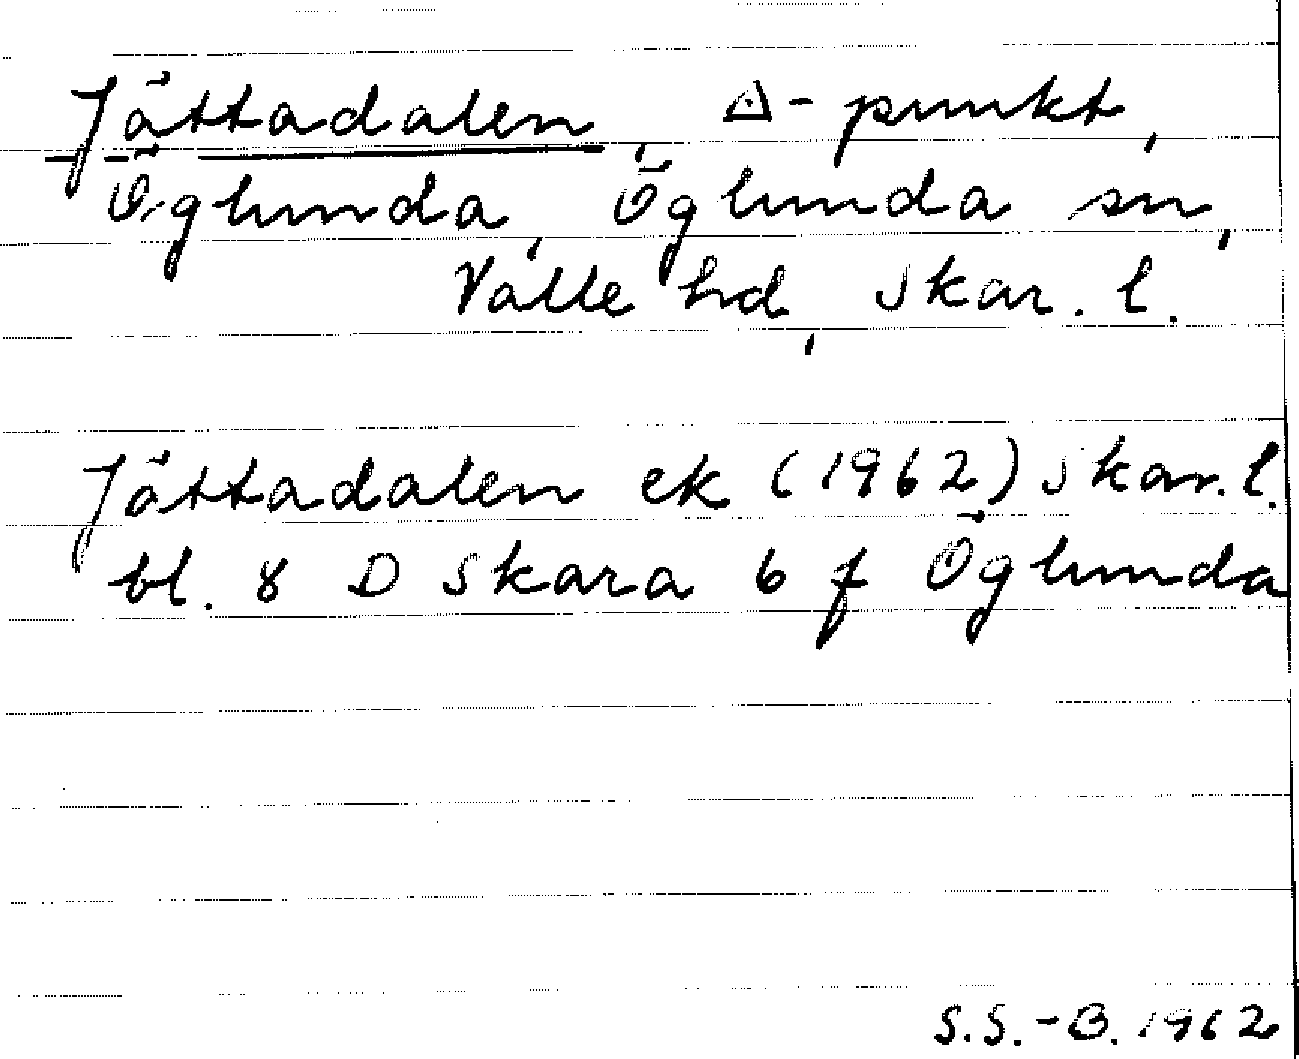 Jättadalen, △-punkt,
Öglunda, Öglunda sn,
Valle hd, Skar. l.
Jättadalen ek (1962) Skar. l.
bl. 8 D Skara 6 f Öglunda
S.S.-B. 1962